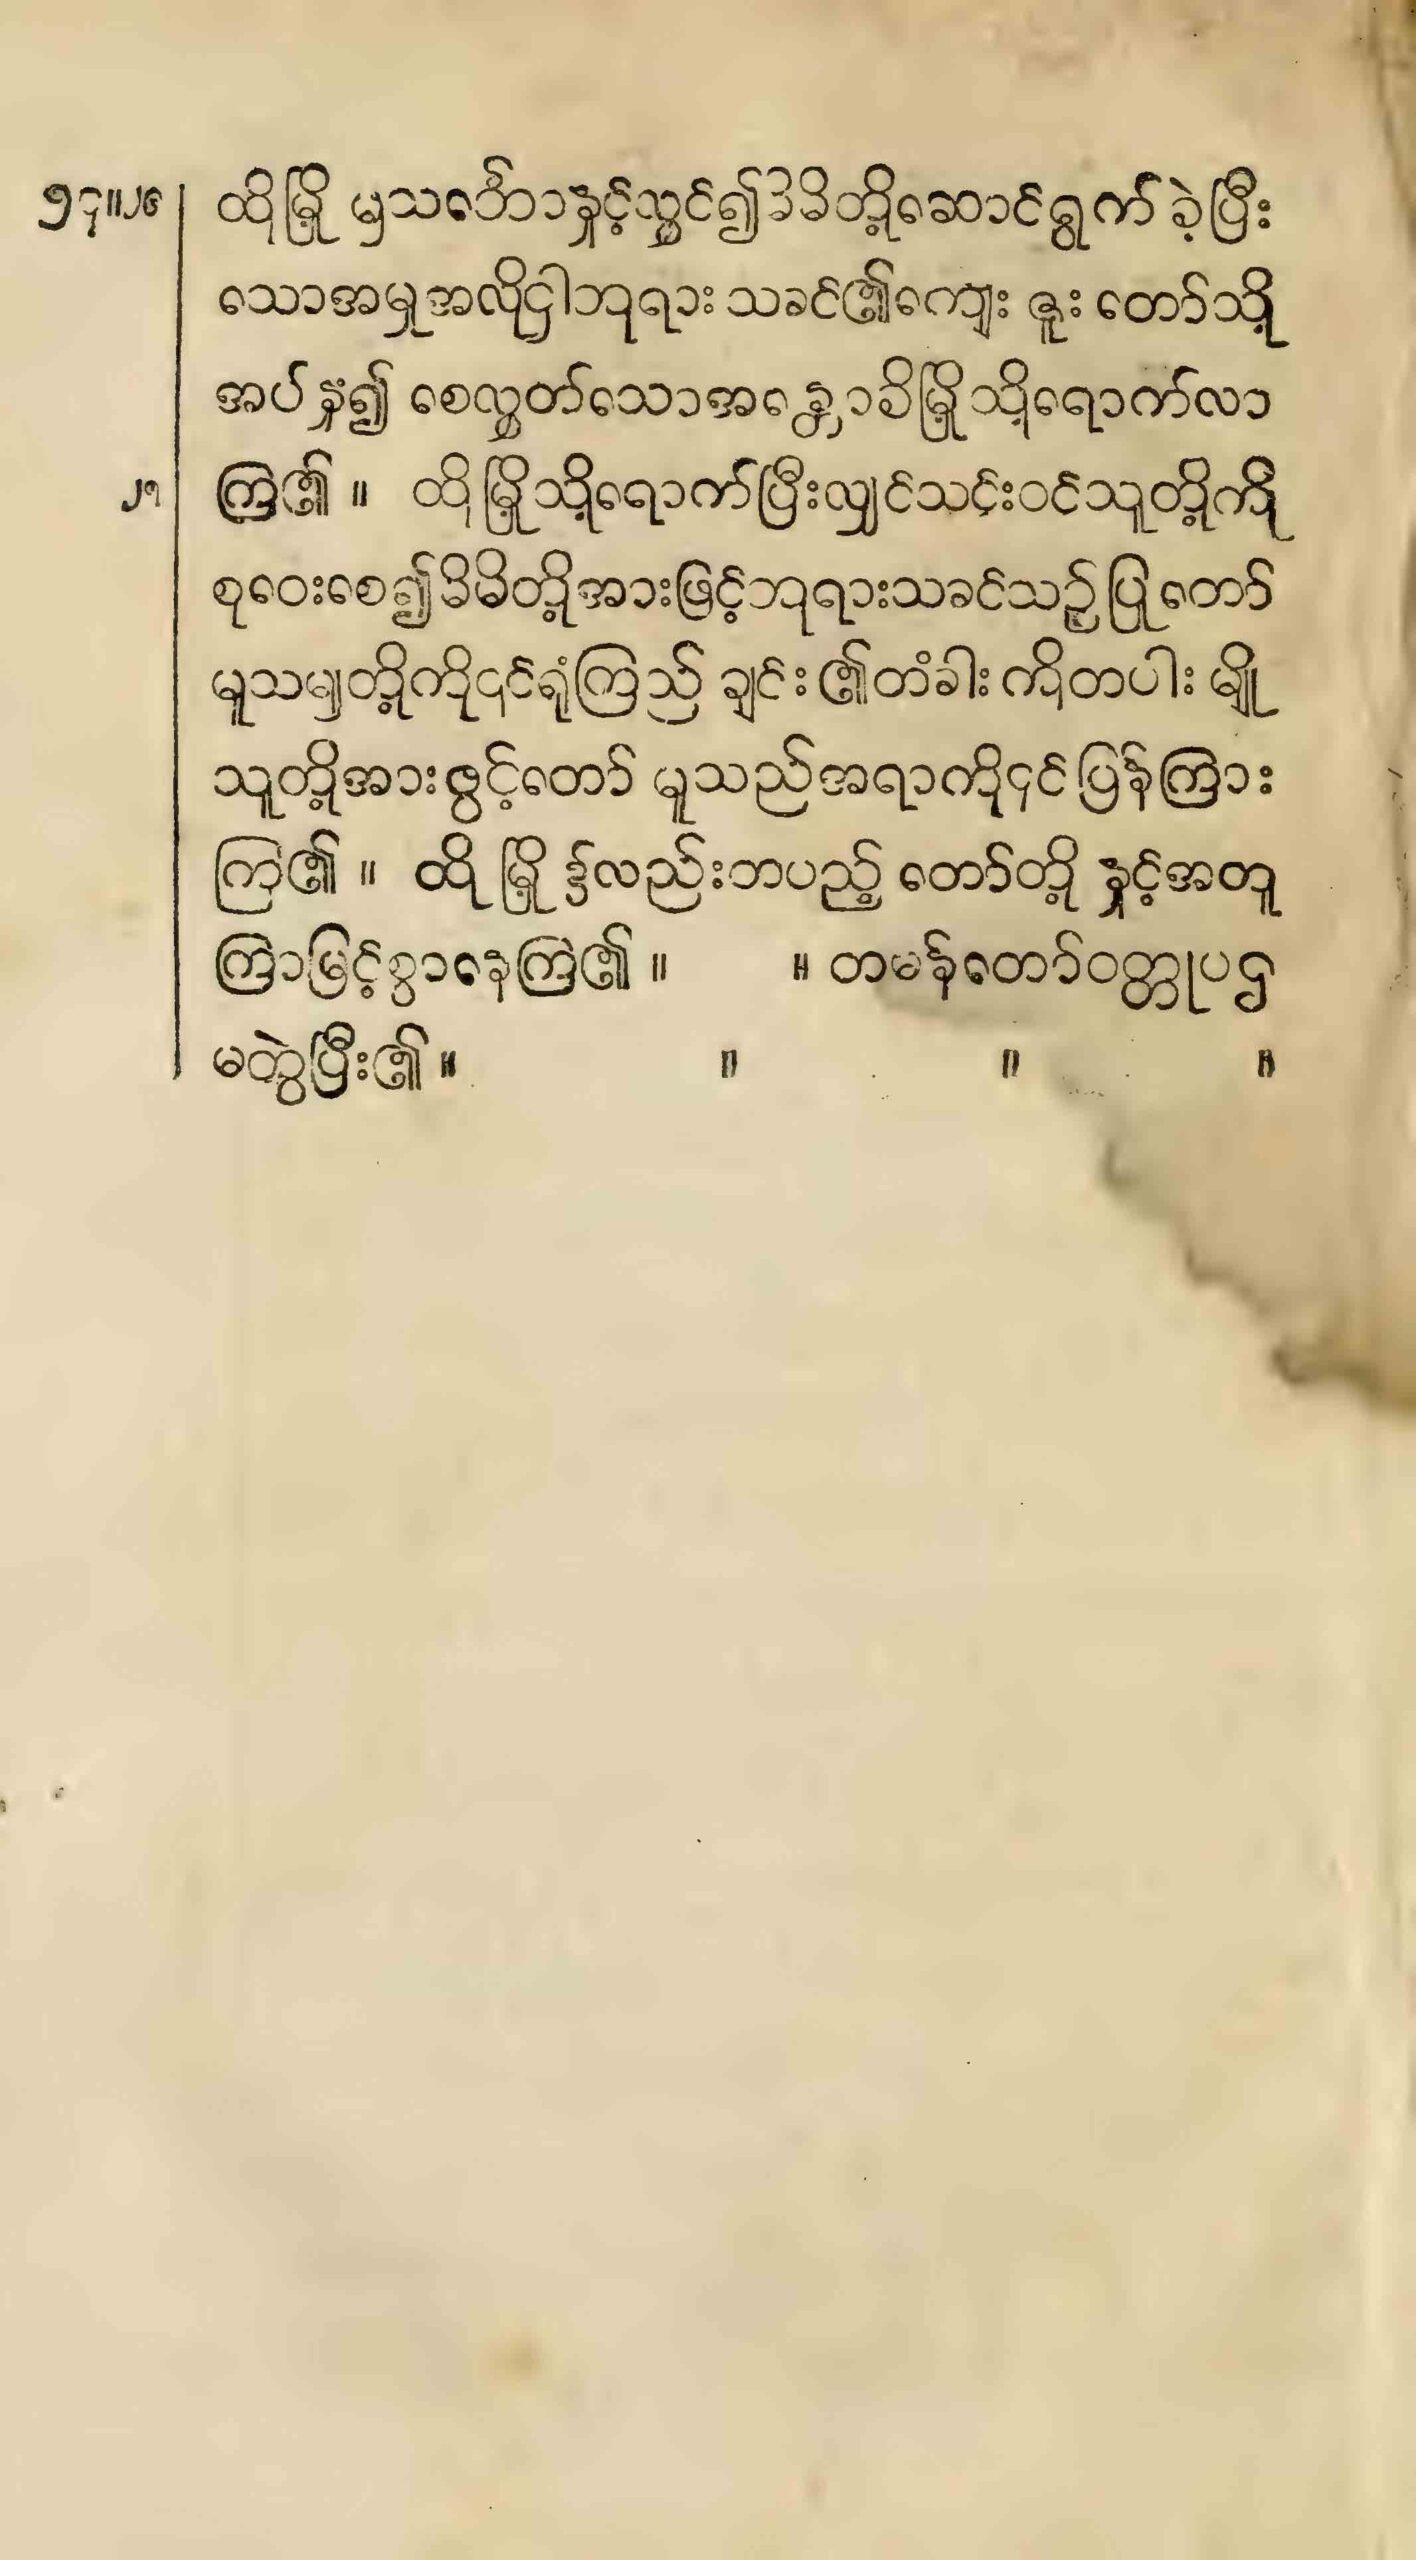 ၁၄။၂၆ ထိုမြို့ မှသင်္ဘောနှင့်လွှင်၍မိမိတို့ဆောင်ရွက် ခဲ့ပြီး
သောအမှုအလို့ငှါဘုရား သခင်၏ကျေး ဇူး တော်သို့
အပ်နှံ၍ စေလွှတ်သောအန္တောခိမြို့သို့ရောက်လာ
၂၇ ကြ၏ ။ ထိုမြို့သို့ရောက်ပြီးလျှင်သင်းဝင်သူတို့ကို
စုဝေးစေ၍မိမိတို့အားဖြင့်ဘုရားသခင်သည် ပြုတော်
မူသမျှတို့ကို၎င်ရုံကြည် ချင်း၏တံခါး ကိုတပါး မျိုး
သူတို့အားဖွင့်တော် မူသည်အရာကို၎င်ပြန်ကြား
ကြ၏ ။ ထို မြို့ ၌လည်းတပည့် တော်တို့ နှင့်အတူ
ကြာမြင့်စွာနေကြ၏ ။ ။ တမန်တော်ဝတ္ထုပဌ
မတွဲပြီး၏ ။ ။ ။ ။